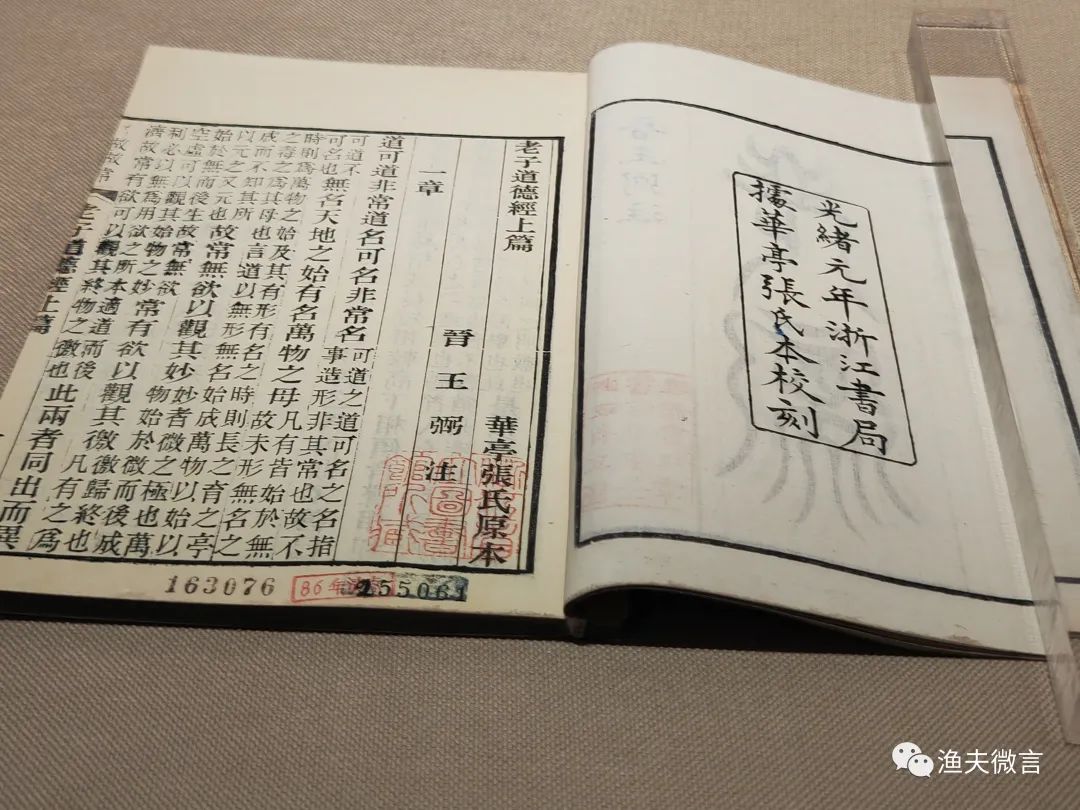 光緒元年浙江書局
據華亭張氏本校刻
老子道德經上篇
華亭張氏原本
晉王弼注
一章
道可道非常道名可名非常名
可道之道可名之名指
事造形非其常也故不
可道不
可名也
無名天地之始有名萬物之母
凡有皆始於無
故未形無名之
時則爲萬物之始及其有形有名之時則長之育之亭
之毒之爲其母也言道以無形無名始成萬物以始以
成而不知其所
以元之又元也
故常無欲以觀其妙
妙者微之極也萬
物始於微而後成
始於無而後生故常無欲
空虛可以觀其始物之妙
常有欲以觀其徼
徼歸終也
凡有之爲
利必以無爲用欲之所本適道而後
濟故常有欲可以觀其終物之徼也
此兩者同出而異
老子道德經上篇
163076
86年
255061
渔夫微言